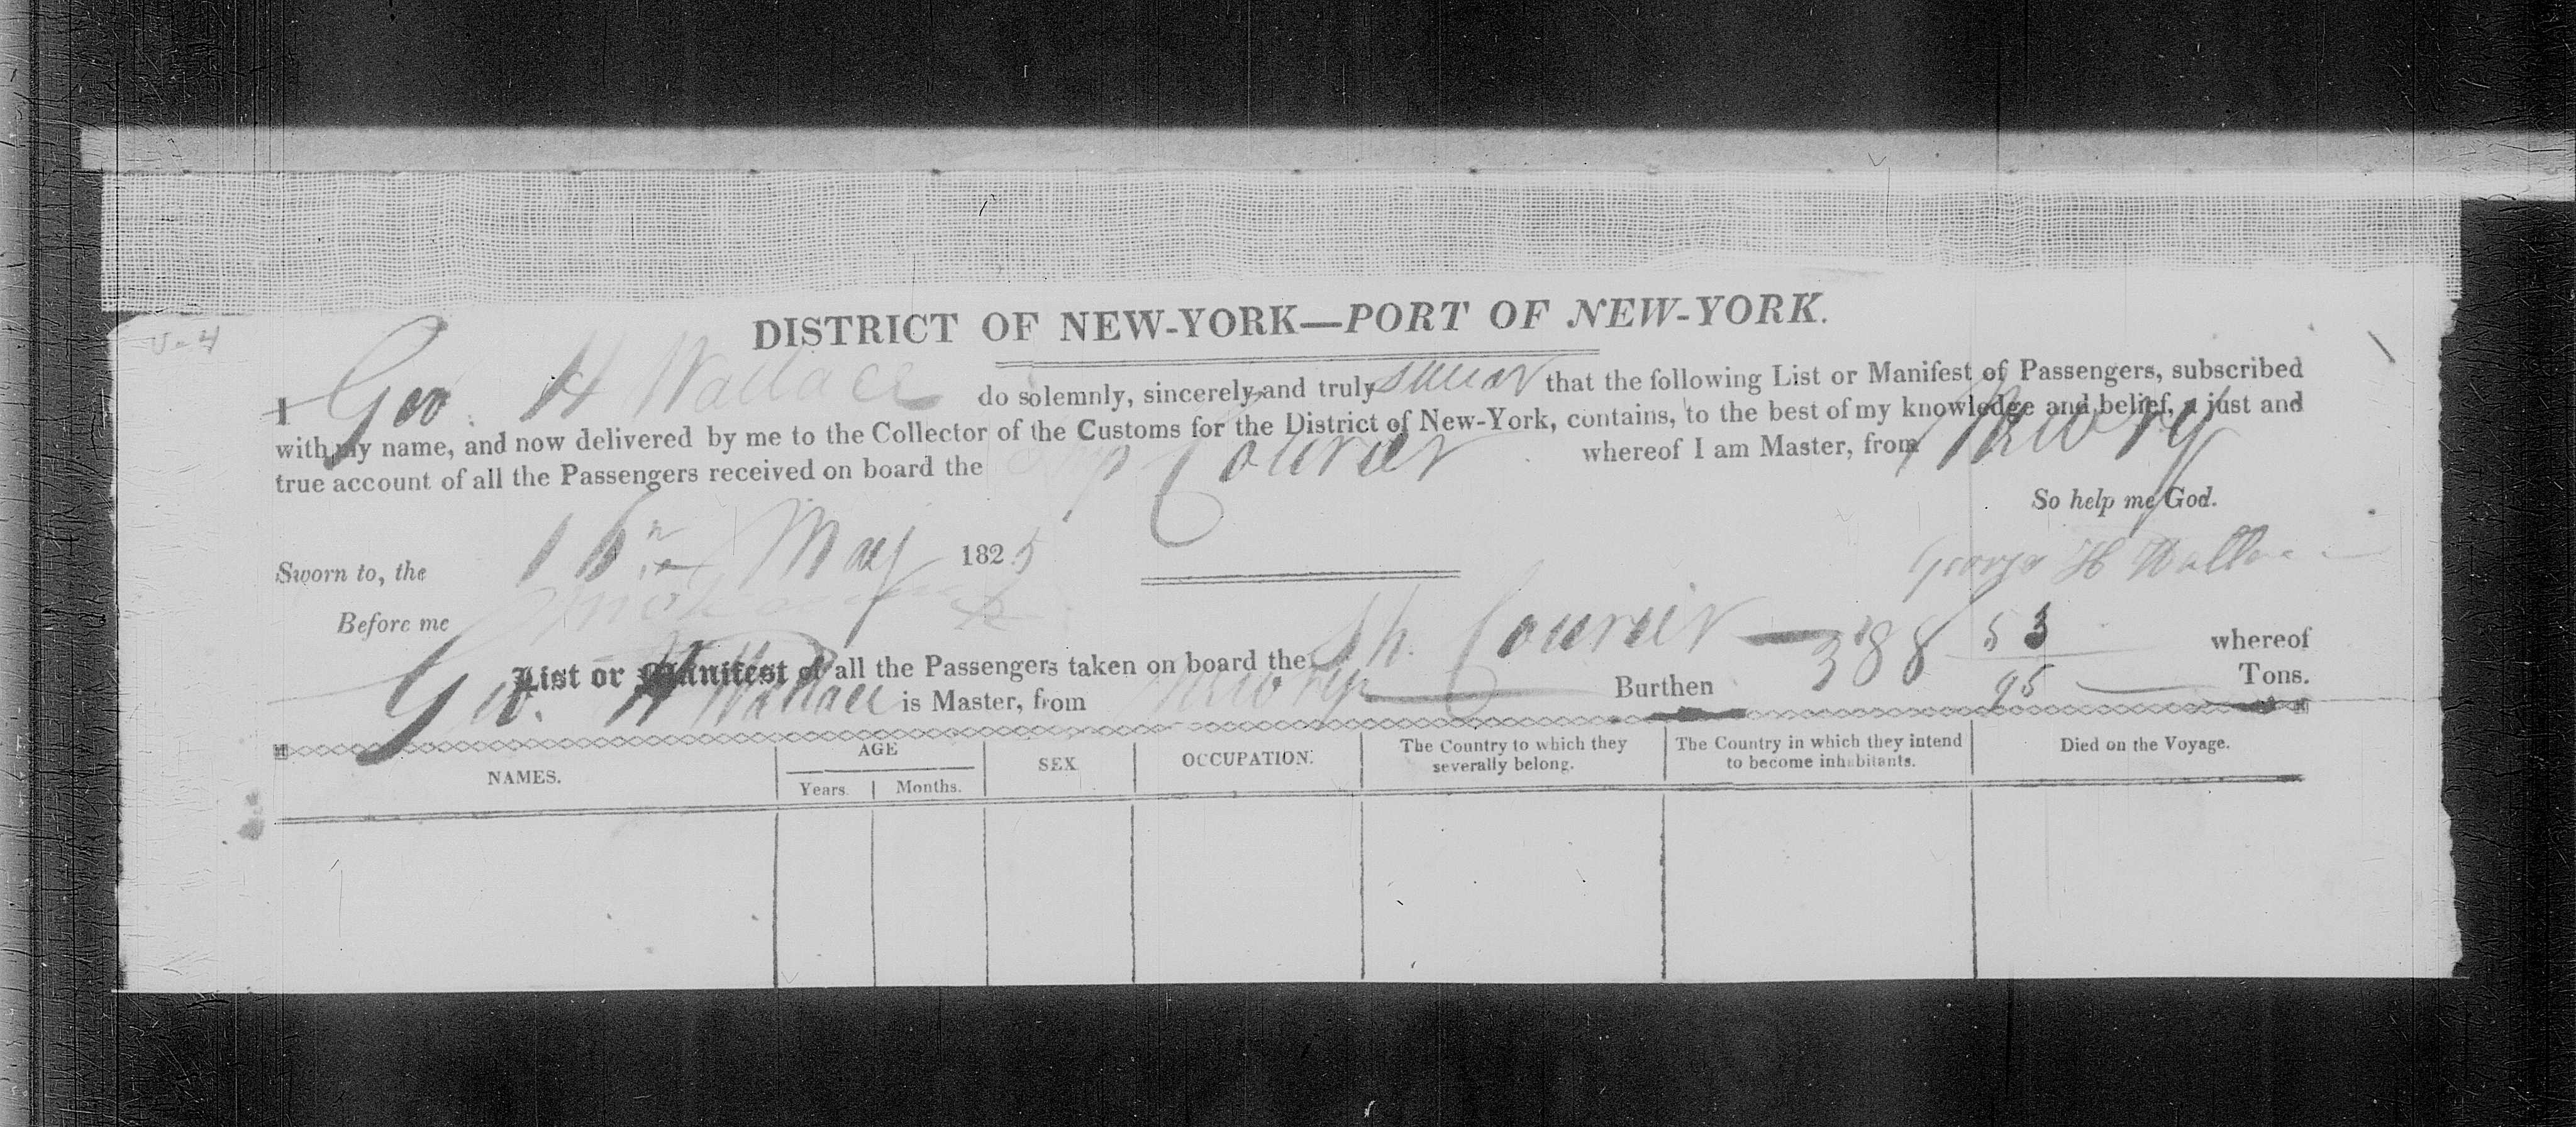 DISTRICT OF NEW-YORK—PORT OF NEW-YORK.
I Geo. H Wallace do solemnly, sincerely and truly swear that the following List or Manifest of Passengers, subscribed
with my name, and now delivered by me to the Collector of the Customs for the District of New-York, contains, to the best of my knowledge and belief, a just and
true account of all the Passengers received on board the Ship Courier whereof I am Master, from
So help me God.
Sworn to, the May 1825
George H Wallace
Before me
List or Manifest of all the Passengers taken on board the Sh. Courier 388 53/95 whereof
Geo. H Wallace is Master, from Burthen Tons.
NAMES. AGE SEX OCCUPATION. The Country to which they severally belong. The Country in which they intend to become inhabitants. Died on the Voyage.
Years. Months.